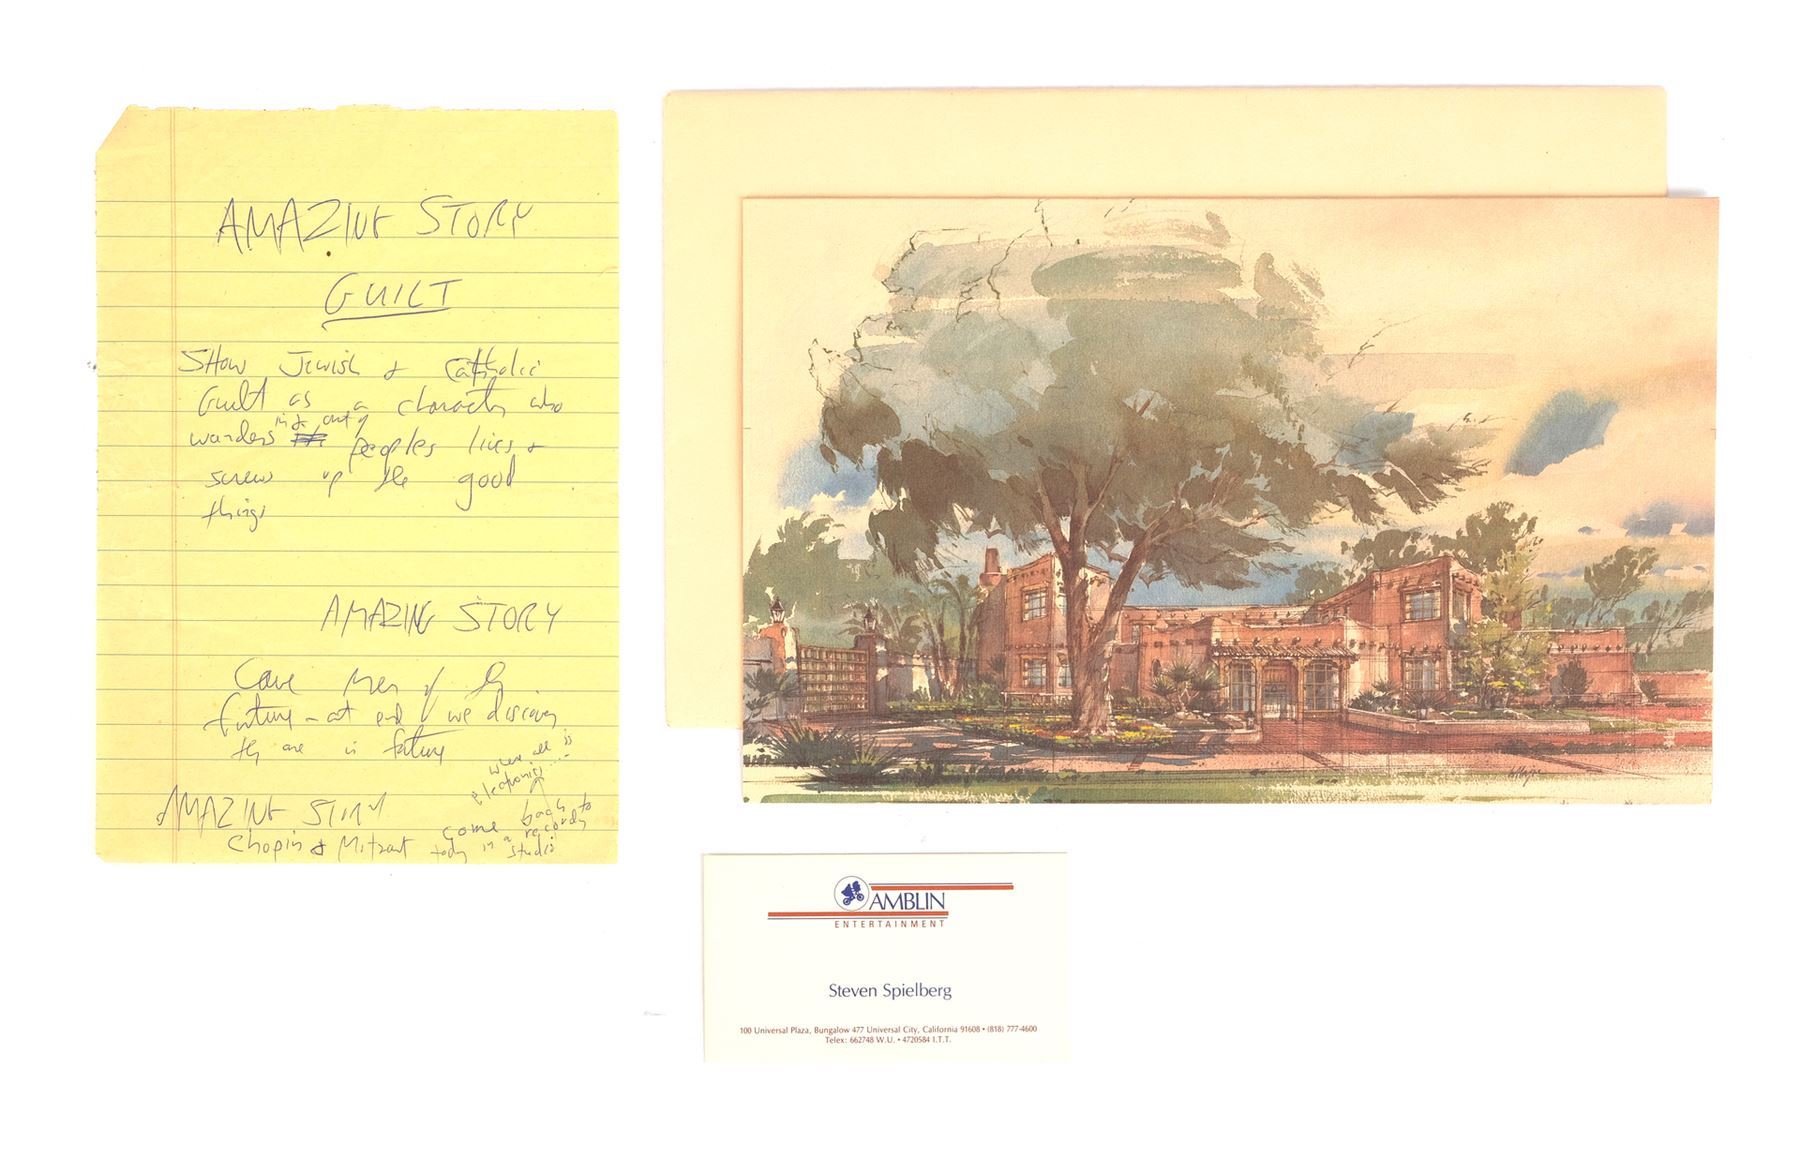 AMAZING STORY
GUILT
SHow Jewish & Catholic
Guilt as a character who
wanders in & out of peoples lives &
screw up the good
things
AMAZING STORY
Cave Men of the
future - at end we discover
they are in future
AMAZING STORY
Chopin & Mitzart come back to
today in a recording
studio
where all is
electronics ....
AMBLIN
ENTERTAINMENT
Steven Spielberg
100 Universal Plaza, Bungalow 477 Universal City, California 91608 • (818) 777-4600
Telex: 662748 W.U. • 4720584 I.T.T.